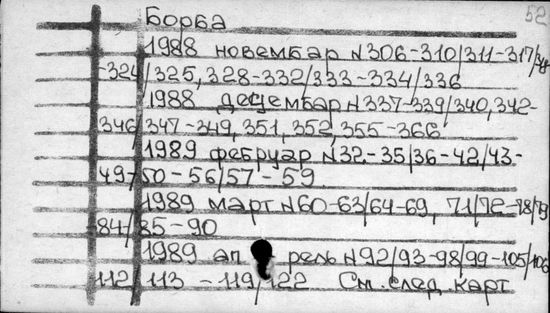 52
Борба
1988 новембар N306-310/311-317/318
-324/325,328-332/333-334/336
1988 децембар N337-339/340,342-
346/347-349,351,352,355-366
1989 фебруар N32-35/36-42/43-
49/50-56/57-59
1989 март N60-63/64-69, 71/72-78/79
84/85-90
1989 ап рель N92/93-98/99-105/106
112/113-119/122 См. след. карт